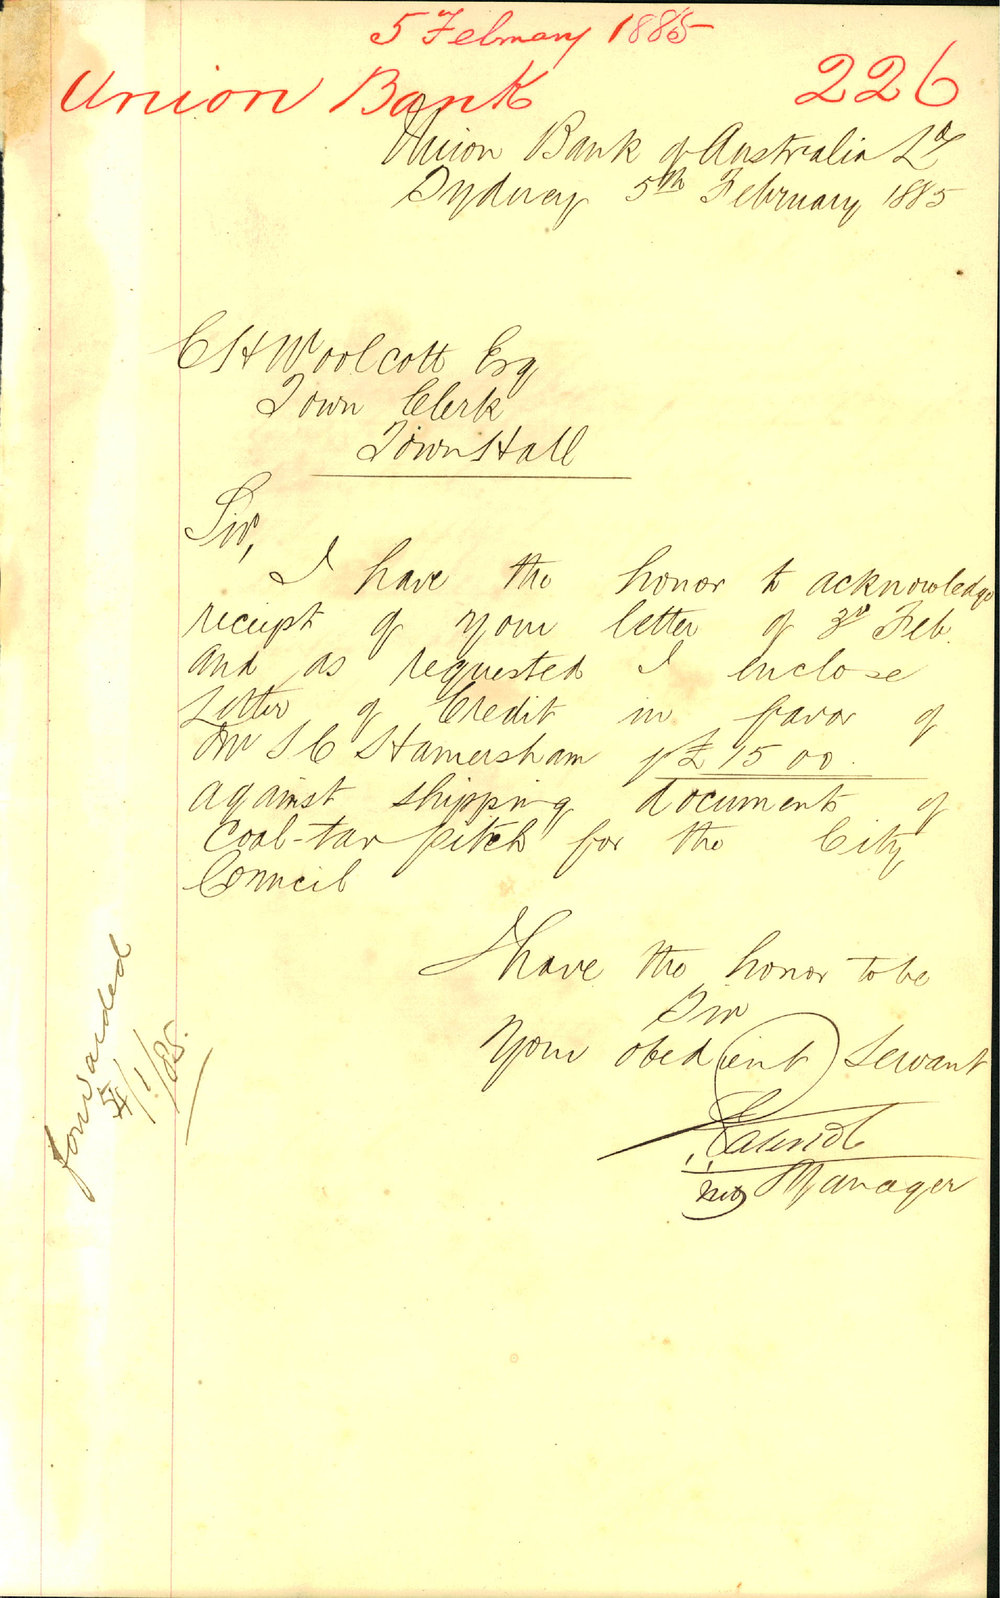 5 February 1885
Union Bank
226
Union Bank of Australia Ld
Sydney 5th February 1885
C H Woolcott Esq
Town Clerk
Town Hall
Sir,
I have the honor to acknowledge
receipt of your letter of 3rd Feb.
and as requested I enclose
Letter of Credit in favor of
Mr S C Hamersham £ 15 00.
against shipping documents of
Coal-tar pitch for the City
Council
I have the honor to be
Sir
Your obedient Servant
Manager
forwarded